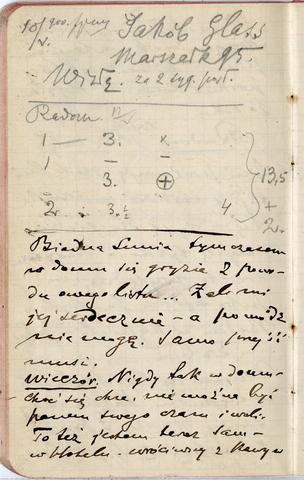 Jakób Glass
Marszałk 95.
Wiztę. za 2 tyg. 
Radom
1 — 3. x
1 — –
3. ⊕ 13,5
2. 3.½ 4 +
2.
Biedna Sunia tymczasem
w domu się gryzie z powo-
du owego listu... Żal mi
jej serdecznie – a pomódz
nie mogę. Samo przejść
musi.
Wieczór. Nigdy tak w domu–
choć się chce, nie można być
panem swego czasu i woli.
To też jestem teraz sam–
w hotelu – wróciwszy z